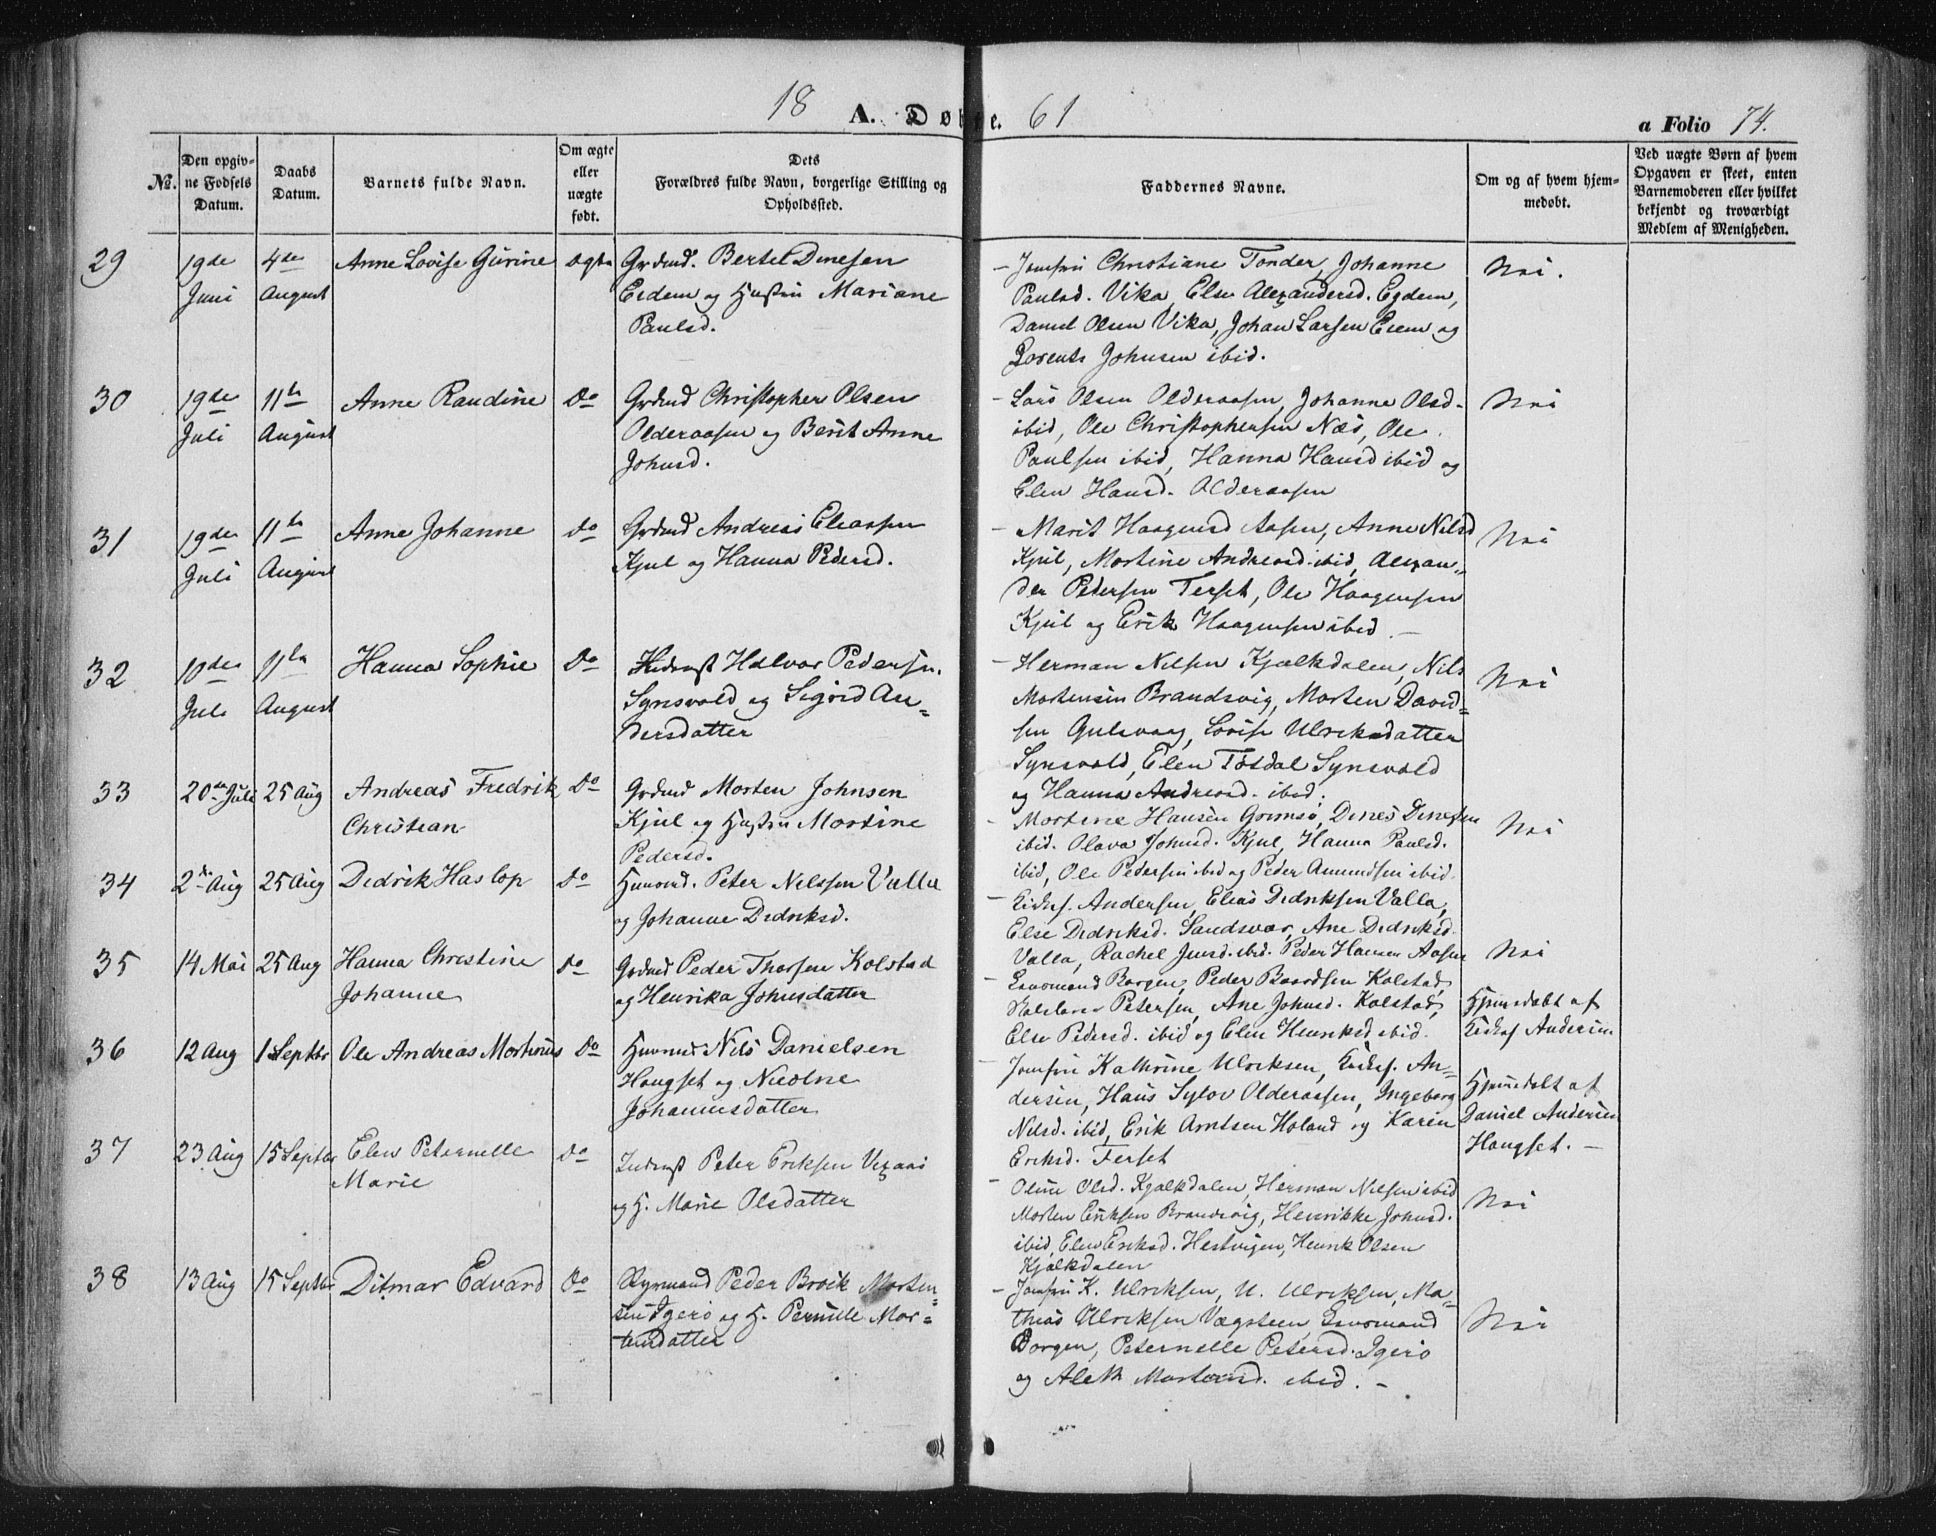 18 A. Døbte. 61
a Folio 74.
No.
Den opgiv-
ne Fødsels
Datum.
Daabs
Datum.
Barnets fulde Navn.
Om ægte
eller
uægte
født.
Dets
Forældres fulde Navn, borgerlige Stilling og
Opholdssted.
Faddernes Navne.
Om og af hvem hjem-
medøbt.
Ved uægte Børn af hvem
Opgaven er skeet, enten
Barnemoderen eller hvilket
bekjendt og troværdigt
Medlem af Menigheden.
29 19de Juni 4de August Anne Lovise Gurine ægte
Grdmd. Bertel Dinesen
Eidem og Hustru Mariane
Paulsd.
- Jomfru Christiane Tonder, Johanne
Paulsd. Vika, Else Alexandersd. Egdem,
Daniel Olsen Vika, Johan Larsen Eiem og
Lorents Johnsen ibid.
Nei.
30 19de Juli 11te August Anne Raudine Do
Grdmd Christopher Olsen
Olderaasen og Berit Anne
Johnsd.
- Lars Olsen Olderaasen, Johanne Olsd.
ibid, Ole Christophersen Næs, Ole
Paulsen ibid, Hanna Hansd ibid og
Elen Hansd. Olderaasen
Nei
31 19de Juli 11te August Anne Johanne Do
Grdmd Andreas Eliassen
Kjul og Hanna Pedersd.
- Marit Haagensd Aasen, Anne Nilsd
Kjul, Mortine Andreasd. ibid, Alexan-
der Petersen Terset, Ole Haagensen
Kjul og Erik Haagensen ibid. -
Nei
32 10de Juli 11te August Hanna Sophie Do
Halvor Pedersen.
Synsvold og Sigrid An-
dersdatter
- Herman Nilsen Kjælkdalen, Nils
Mortensen Brandsvig, Morten David-
sen Gulsvaag, Lovise Ulriksdatter
Synsvold, Elen Tosdal Synsvold
og Hanna Andreasd. ibid.
Nei
33 20de Juli 25 Aug Andreas Fredrik
Christian Do
Grdmd Morten Johnsen
Kjul og Hustru Mortine
Pedersd.
- Mortine Hansen Grimsø, Dines Dinesen
ibid. Olava Johnsd. Kjul, Hanna Paulsd.
ibid, Ole Pedersen ibid og Peder Amundsen ibid.
Nei
34 2de Aug 25 Aug Didrik Haslop Do
Huusmd. Peter Nilssen Valla
og Johanne Didriksd.
- Kirkes. Andersen, Elias Didriksen Valla,
Else Didriksd. Sandsvær, Ane Didriksd.
Valla, Rachel Jensd. ibid. Peder Hansen Aasen
Nei
35 14 Mai 25 Aug Hanna Christine
Johanne Do
Grdmd Peder Thorsen Kolstad
og Henrika Johnsdatter
- Borgen, Peder Baardsen Kolstad,
Petersen, Ane Johnsd. Kolstad,
Else Pedersd. ibid og Elen Henriksd ibid.
Hjemmedøbt af
Kirkes. Andersen
36 12 Aug 1 Septbr Ole Andreas Mortinus Do
Huusmd Nils Danielsen
Haugset og Nicoline
Johannesdatter
- Jomfru Kathrine Ulriksen, Kirkes. An-
dersen, Hans Sylov Olderaasen, Ingeborg
Nilsd. ibid, Erik Arntsen Holand og Karen
Eriksd. Terset
Hjemmedøbt af
Daniel Andersen
Haugset. -
37 23 Aug 15 Septbr Elen Peternelle
Marie Do
Inderst Peter Eriksen Vexaas
og H. Marie Olsdatter
- Oline Olsd. Kjælkdalen, Herman Nilsen ibid
Morten Eriksen Brandsvig, Henrikke Johnsd.
ibid, Elen Eriksd. Hestvigen, Henrik Olsen
Kjælkdalen
Nei
38 13 Aug 15 Septbr Ditmar Edvard Do
Strmand Peder Broik Morten-
sen Igerø og H. Pernille Mor-
tensdatter
- Jomfru K. Ulriksen, U. Ulriksen, Ma-
thias Ulriksen Vægsteen,
Borgen, Peternelle Petersd. Igerø
og Aleth Mortensd. ibid. -
Nei